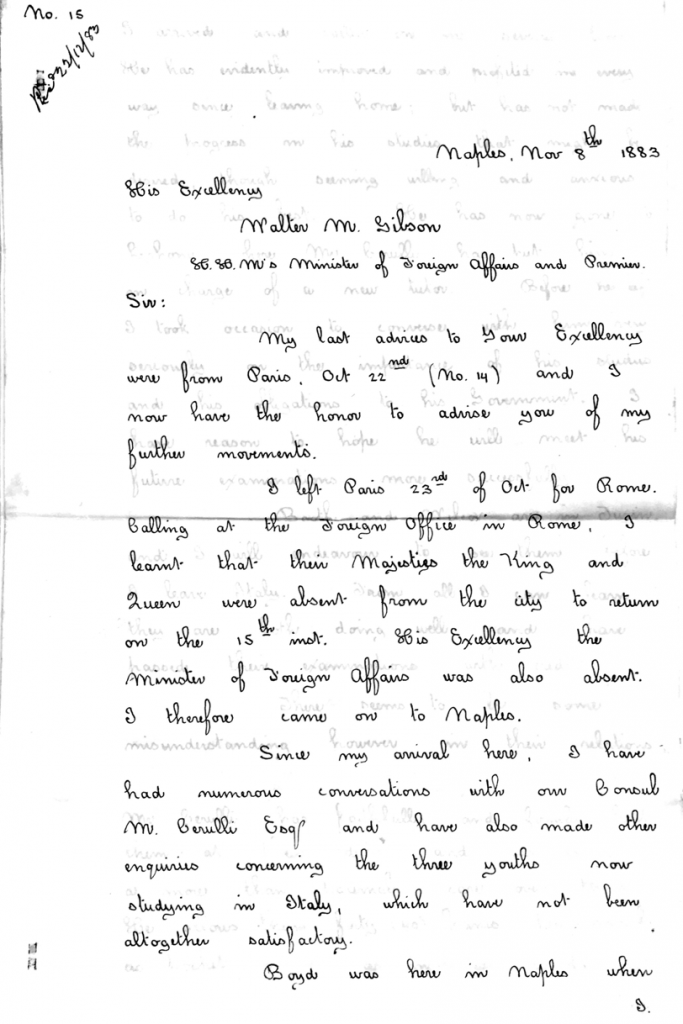 No. 15
22/12/83
Naples, Nov 8th 1883
His Excellency
Walter M. Gibson
H.H.M's Minister of Foreign Affairs and Premier.
Sir:
My last advices to Your Excellency
were from Paris, Oct 22nd (No. 14) and I
now have the honor to advise you of my
further movements.
I left Paris 23rd of Oct for Rome.
Calling at the Foreign Office in Rome, I
learnt that their Majesties the King and
Queen were absent from the city to return
on the 15th inst. His Excellency the
Minister of Foreign Affairs was also absent.
I therefore came on to Naples.
Since my arrival here, I have
had numerous conversations with our Consul
M. Cerulli Esqr and have also made other
enquiries concerning the three youths now
studying in Italy, which have not been
altogether satisfactory.
Boyd was here in Naples when
I.